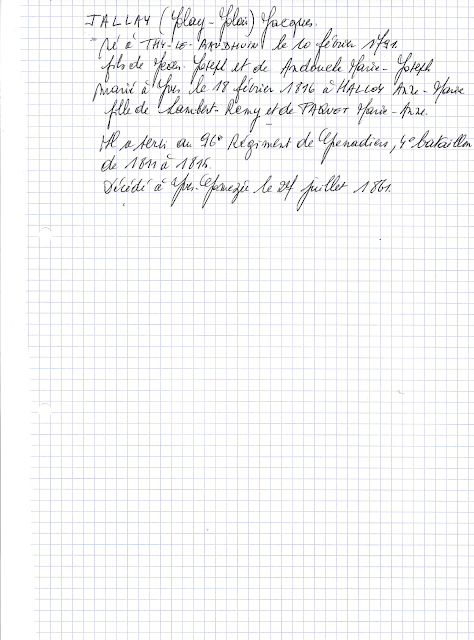 JALLAY (Jolay-Joloi) Jacques.
né à THY-LE-BAUDHUIN le 10 février 1791.
fils de Jean-Joseph et de Andouche Marie-Joseph
marié à Yves le 18 février 1816 à HALLOY Anne-Marie
fille de Lambert-Remy et de PAQUOT Marie-Anne.
Il a servi au 96e Régiment de Grenadiers, 4e bataillon
de 1811 à 1815.
Décédé à Yves-Gomezée le 24 juillet 1861.